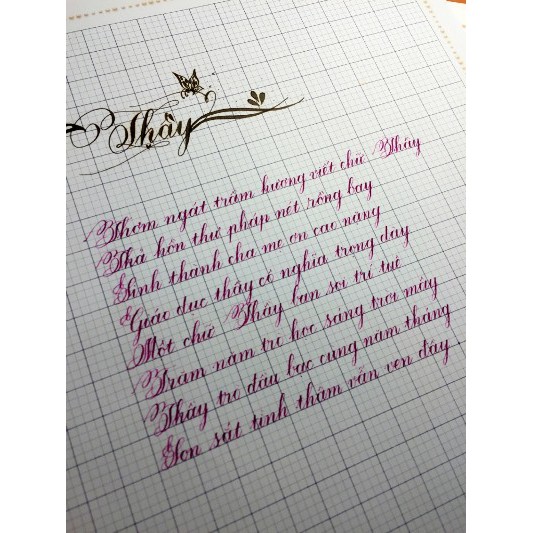 Thầy
Thơm ngát trầm hương viết chữ Thầy
Thả hồn thư pháp nét rồng bay
Sinh thành cha mẹ ơn cao nặng
Giáo dục thầy cô nghĩa trọng dày
Một chữ Thầy ban soi trí tuệ
Trăm năm trò học sáng trời mây
Thầy trò đầu bạc cùng năm tháng
Son sắt tình thâm vẫn vẹn đầy